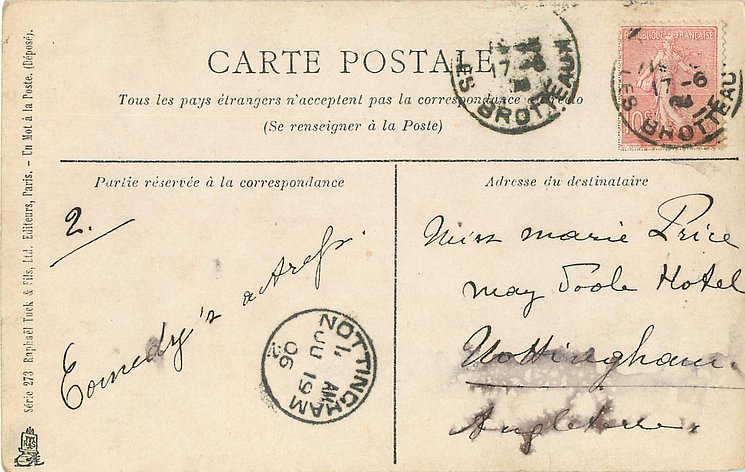 CARTE POSTALE
Tous les pays étrangers n'acceptent pas la correspondance au recto
(Se renseigner à la Poste)
RÉPUBLIQUE FRANÇAISE
10
LES BROTTEAUX
17
LES BROTTEAUX
17
Partie réservée à la correspondance
2.
Comedy's actress.
NOTTINGHAM
1. AM
JU 19
06
Adresse du destinataire
Miss Marie Price
May Hotel
Nottingham.
Angleterre
Série 273 Raphaël Tuck & Fils, Ltd. Editeurs, Paris. - Un Mot à la Poste. (Déposé).